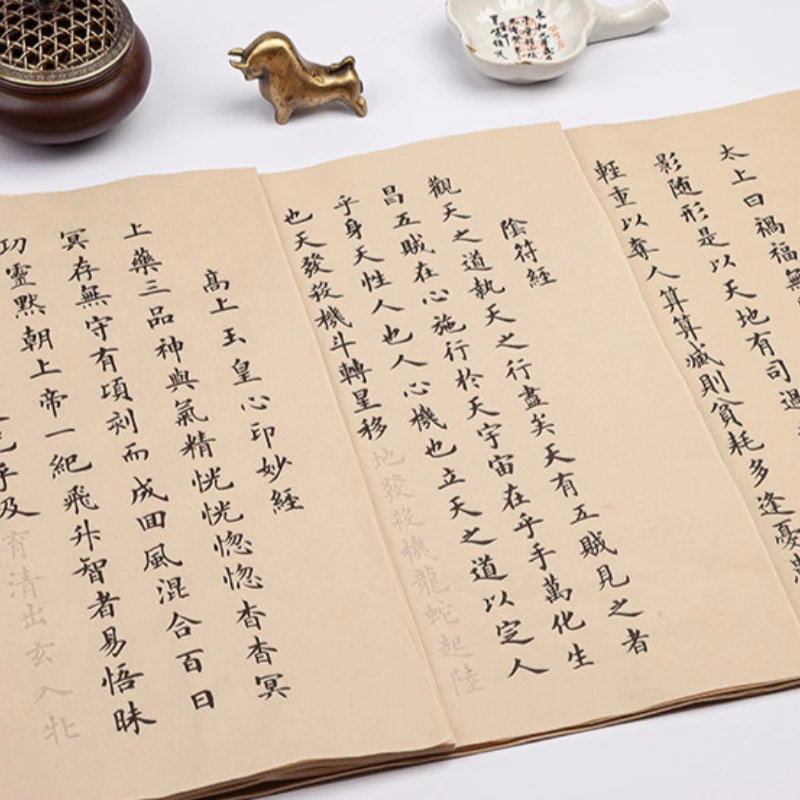 太上曰禍福無
影随形是以天地有司過
輕重以奪人算算减則貧耗多逢憂患
陰符經
觀天之道執天之行盡矣天有五賊見之者
昌五賊在心施行於天宇宙在乎手萬化生
乎身天性人也人心機也立天之道以定人
也天發殺機斗轉星移地發殺機龍蛇起陸
高上玉皇心印妙經
上藥三品神與氣精恍恍惚惚杳杳冥
冥存無守有頃刻而成囬風混合百日
功靈默朝上帝一紀飛升智者易悟昧
育清出玄入牝